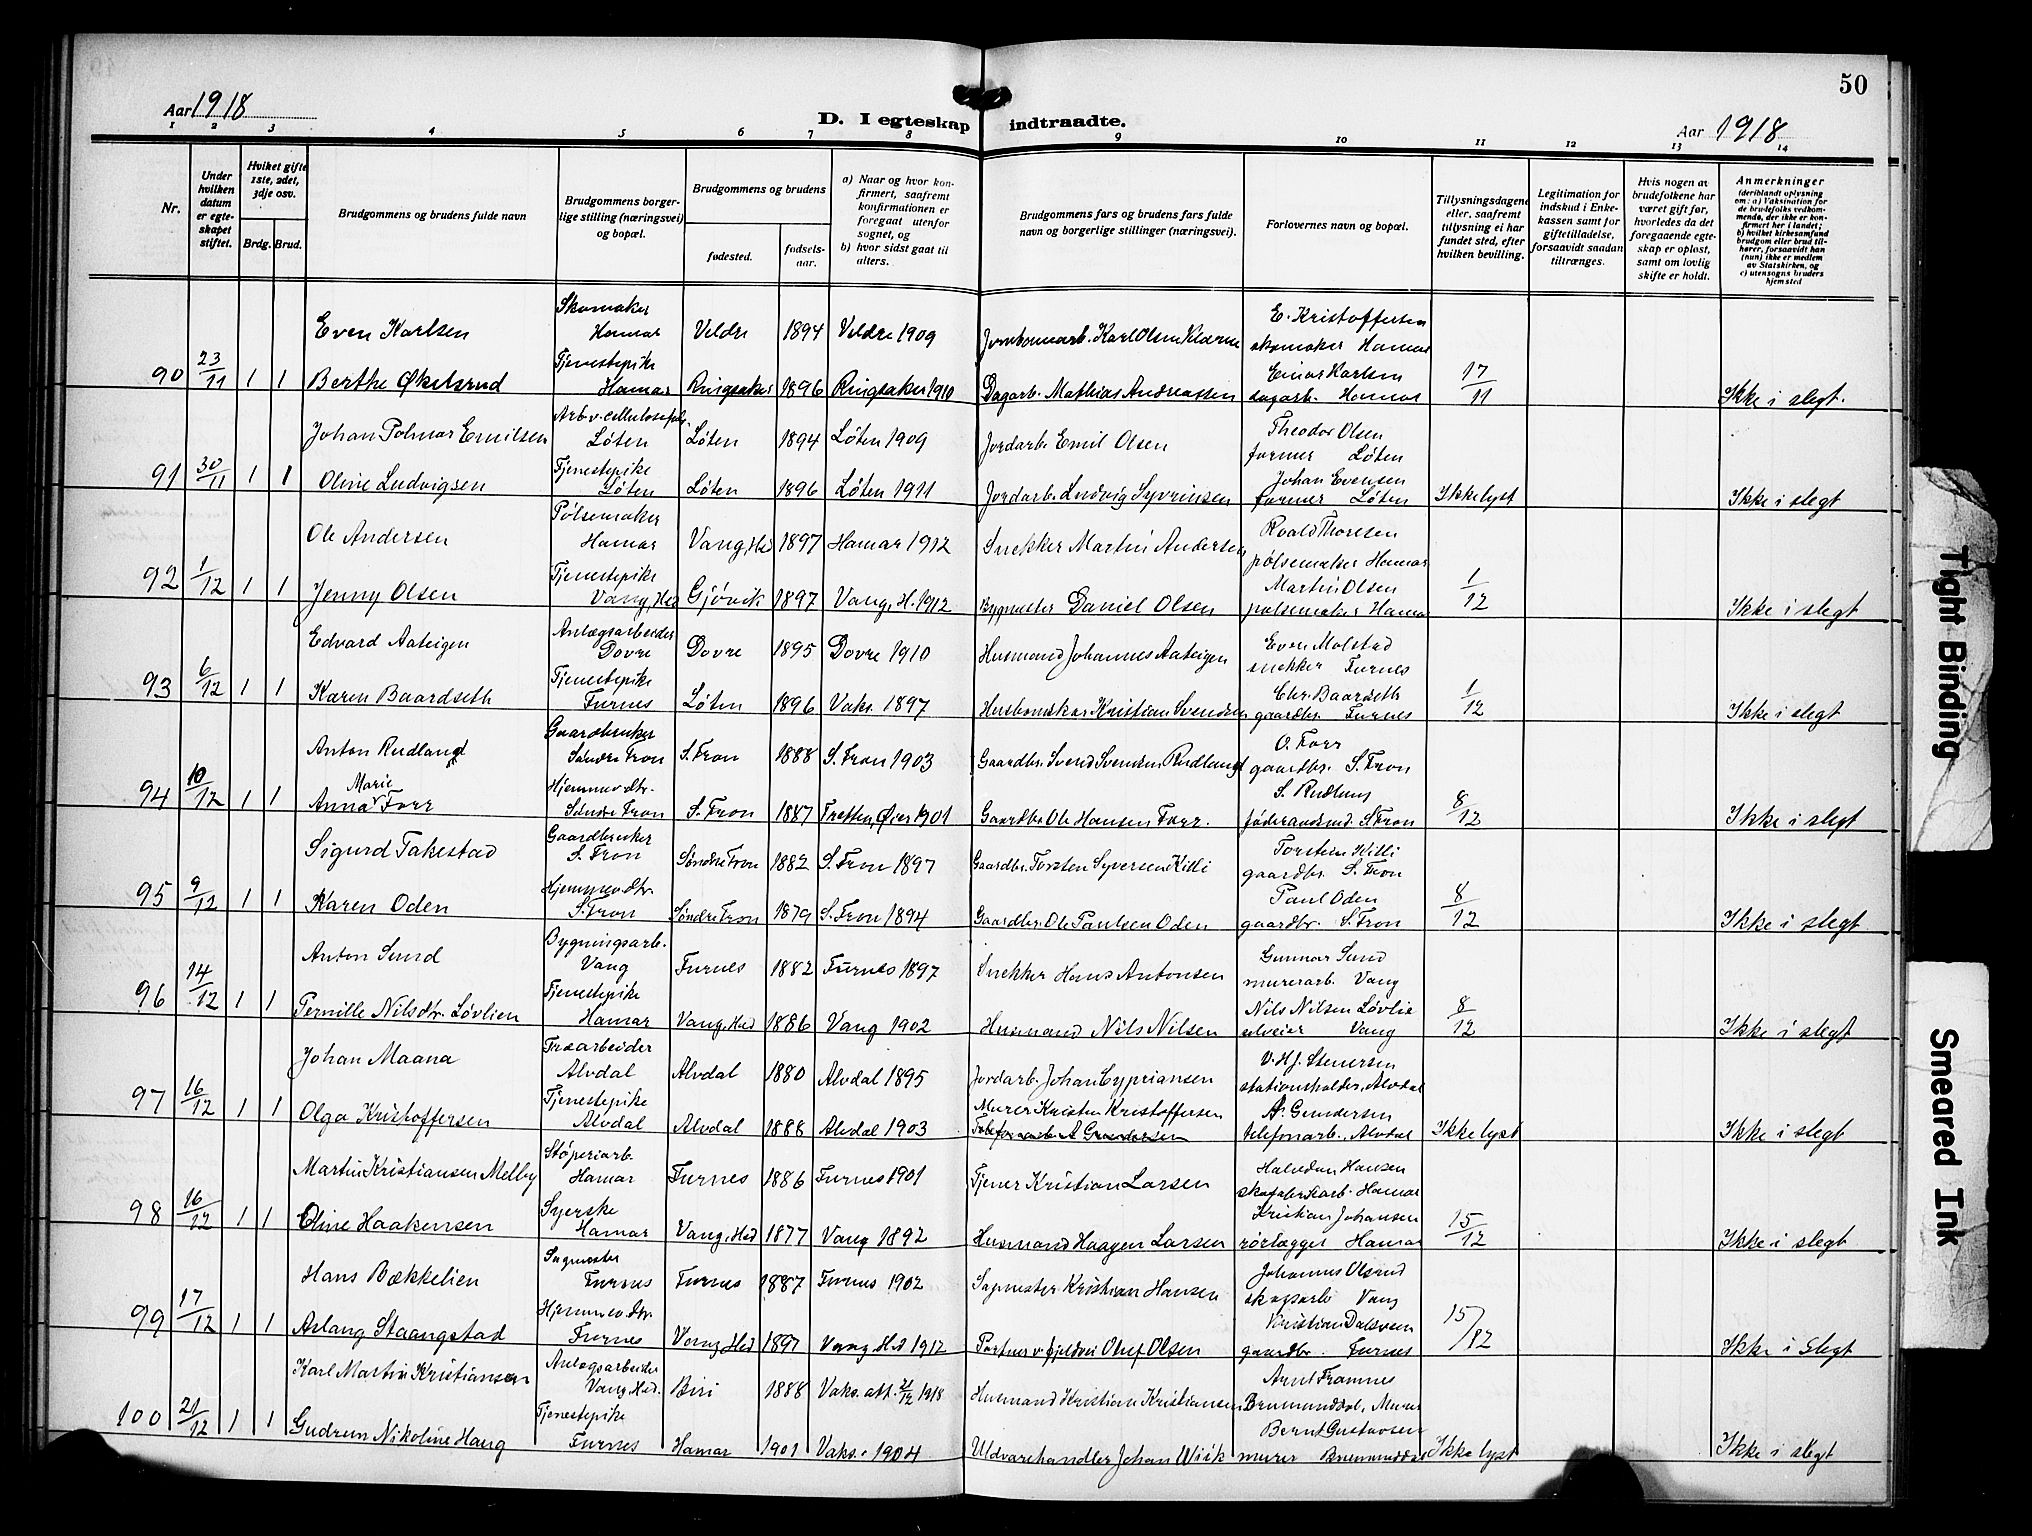 50
Aar 1918
D. I egteskap indtraadte.
Aar 1918
1 2 3 4 5 6 7 8 9 10 11 12 13 14
Nr.
Under hvilken datum er egteskapet stiftet.
Hvilket gifte 1ste, 2det, 3dje osv.
Brdg. Brud.
Brudgommens og brudens fulde navn
Brudgommens borgerlige stilling (næringsvei) og bopæl.
Brudgommens og brudens
fødested.
fødselsaar.
a) Naar og hvor konfirmert, saafremt konfirmationen er foregaat utenfor sognet, og
b) hvor sidst gaat til alters.
Brudgommens fars og brudens fars fulde navn og borgerlige stillinger (næringsvei).
Forlovernes navn og bopæl.
Tillysningsdagene eller, saafremt tillysning ei har fundet sted, efter hvilken bevilling.
Legitimation for indskud i Enkekassen samt for giftetilladelse, forsaavidt saadan tiltrænges.
Hvis nogen av brudefolkene har været gift før, hvorledes da det foregaaende egteskap er opløst, samt om lovlig skifte er holdt.
Anmerkninger (deriblandt oplysning om: a) Vaksination for de brudefolks vedkommende, der ikke er konfirmert her i landet; b) hvilket kirkesamfund brudgom eller brud tilhører, forsaavidt han (hun) ikke er medlem av Statskirken, og c) utensogns bruders hjemsted
Even Karlsen Skomaker Hamar Veldre 1894 Veldre 1909 Karl Olsen E. Kristoffersen skomaker Hamar
90 23/11 1 1 Berthe Økelsrud Tjenestepike Hamar Ringsaker 1896 Ringsaker 1910 Dagarb. Mathias Andreassen Einar Karlsen dagarb. Hamar 17/11 Ikke i slegt.
Johan Polmar Emilsen Arb. v. cellulosefabr. Løten Løten 1894 Løten 1909 Jordarb. Emil Olsen Theodor Olsen former Løten
91 30/11 1 1 Oline Ludvigsen Tjenestepike Løten Løten 1896 Løten 1911 Jordarb. Ludvig Syvrinsen Johan Evensen former Løten Ikke lyst Ikke i slegt
Ole Andersen Pølsemaker Hamar Vang, Hed 1897 Hamar 1912 Snekker Martin Andersen Roald Thoresen pølsemaker Hamar
92 1/12 1 1 Jenny Olsen Tjenestepike Vang, Hed Gjøvik 1897 Vang, H. 1912 Bygmester Daniel Olsen Martin Olsen pølsemaker Hamar 1/12 Ikke i slegt
Edvard Aateigen Anlægsarbeider Dovre Dovre 1895 Dovre 1910 Husmand Johannes Aateigen Even Molstad snekker Furnes
93 6/12 1 1 Karen Baardseth Tjenestepike Furnes Løten 1896 Vaks. 1897 Kristian Svendsen Chr. Baardseth gaardbr. Furnes 1/12 Ikke i slegt
Anton Rudland Gaardbruker Søndre Fron S. Fron 1888 S. Fron 1903 Gaardbr. Svend Svendsen Rudland O. Forr gaardbr. S. Fron
94 10/12 1 1 Anna Marie Forr Hjemmev. dtr. Søndre Fron S. Fron 1887 Fretten, Øier 1901 Gaardbr. Ole Hansen Forr. S. Rudlang føderaadsmd. S. Fron 8/12 Ikke i slegt
Sigurd Takestad Gaardbruker S. Fron Søndre Fron 1882 S. Fron 1897 Gaardbr. Torsten Syversen Killi Torstein Killi gaardbr. S. Fron
95 9/12 1 1 Karen Oden Hjemmev. dtr. S. Fron Søndre Fron 1879 S. Fron 1894 Gaardbr. Ole Paulsen Oden Paul Oden gaardbr. S. Fron 8/12 Ikke i slegt
Anton Sund Bygningsarb. Vang Furnes 1882 Furnes 1897 Snekker Hans Antonsen Gunnar Sund murerarb. Vang
96 14/12 1 1 Pernille Nilsdtr. Løvlien Tjenestepike Hamar Vang, Hed 1886 Vang 1902 Husmand Nils Nilsen Nils Nilsen Løvlie selveier Vang 8/12 Ikke i slegt
Johan Maana Træarbeider Alvdal Alvdal 1880 Alvdal 1895 Jordarb. Johan Cypriansen V. Hj. Stenersen stationsholder, Alvdal
97 16/12 1 1 Olga Kristoffersen Tjenestepike Alvdal Alvdal 1888 Alvdal 1903 Murer Kristen Kristoffersen Telefonarb. A Gundersen A. Gundersen telefonarb., Alvdal Ikke lyst Ikke i slegt
Martin Kristiansen Melby Støperiarb. Hamar Furnes 1886 Furnes 1901 Tjener Kristian Larsen Halvdan Hansen skofabrikarb. Hamar
98 16/12 1 1 Oline Haakensen Syerske Hamar Vang, Hed 1877 Vang 1892 Husmand Haagen Larsen Kristian Johansen rørlægger Hamar 15/12 Ikke i slegt
Hans Bækkelien Sagmester Furnes Furnes 1887 Furnes 1902 Sagmester Kristian Hansen Johannes Olsrud skogsarb Vang
99 17/12 1 1 Aslaug Staangstad Hjemmev. dtr. Furnes Vang, Hed 1897 Vang, Hed 1912 Oluf Olsen Kristian Dalsveen gaardbr. Furnes 15/12 Ikke i Slegt
Karl Martin Kristiansen Anlægsarbeider Vang, Hed. Biri 1888 Vaks. att. 21/12 1918 Husmand Kristian Kristiansen Arnt Framnes Brumunddal, Murer
100 21/12 1 1 Gudrun Nikoline Haug Tjenestepike Furnes Hamar 1901 Vaks. 1904 Uldvarehandler Johan Wiik Bernt Gustavsen murer Brumunddal Ikke lyst Ikke i slegt
Tight Binding
Smeared Ink